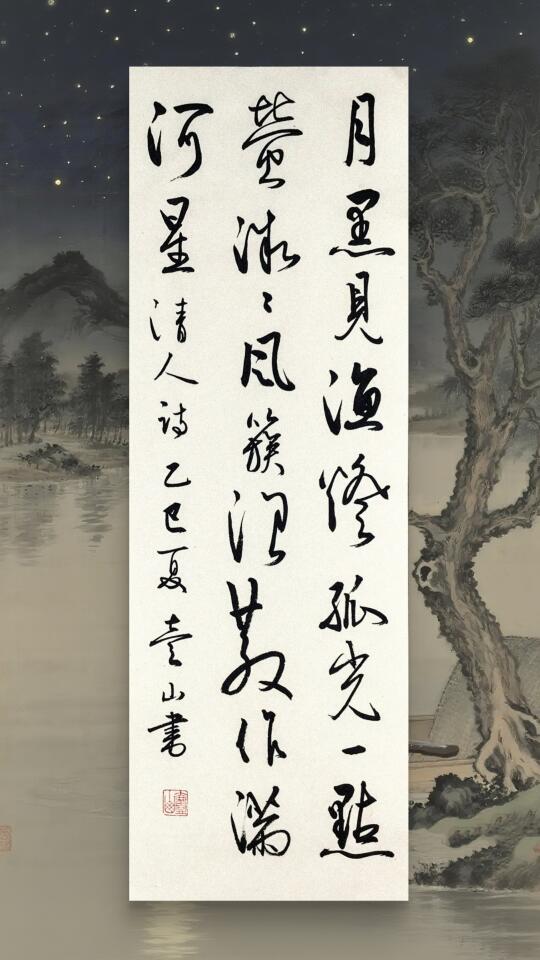 月黑見漁燈孤光一點
螢微〻風簇浪散作滿
河星 清人詩 乙巳夏 山書